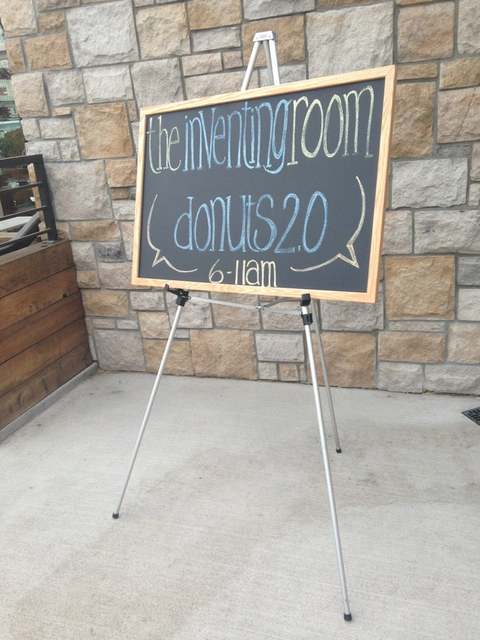 the inventing room
donuts 2.0
6-11am